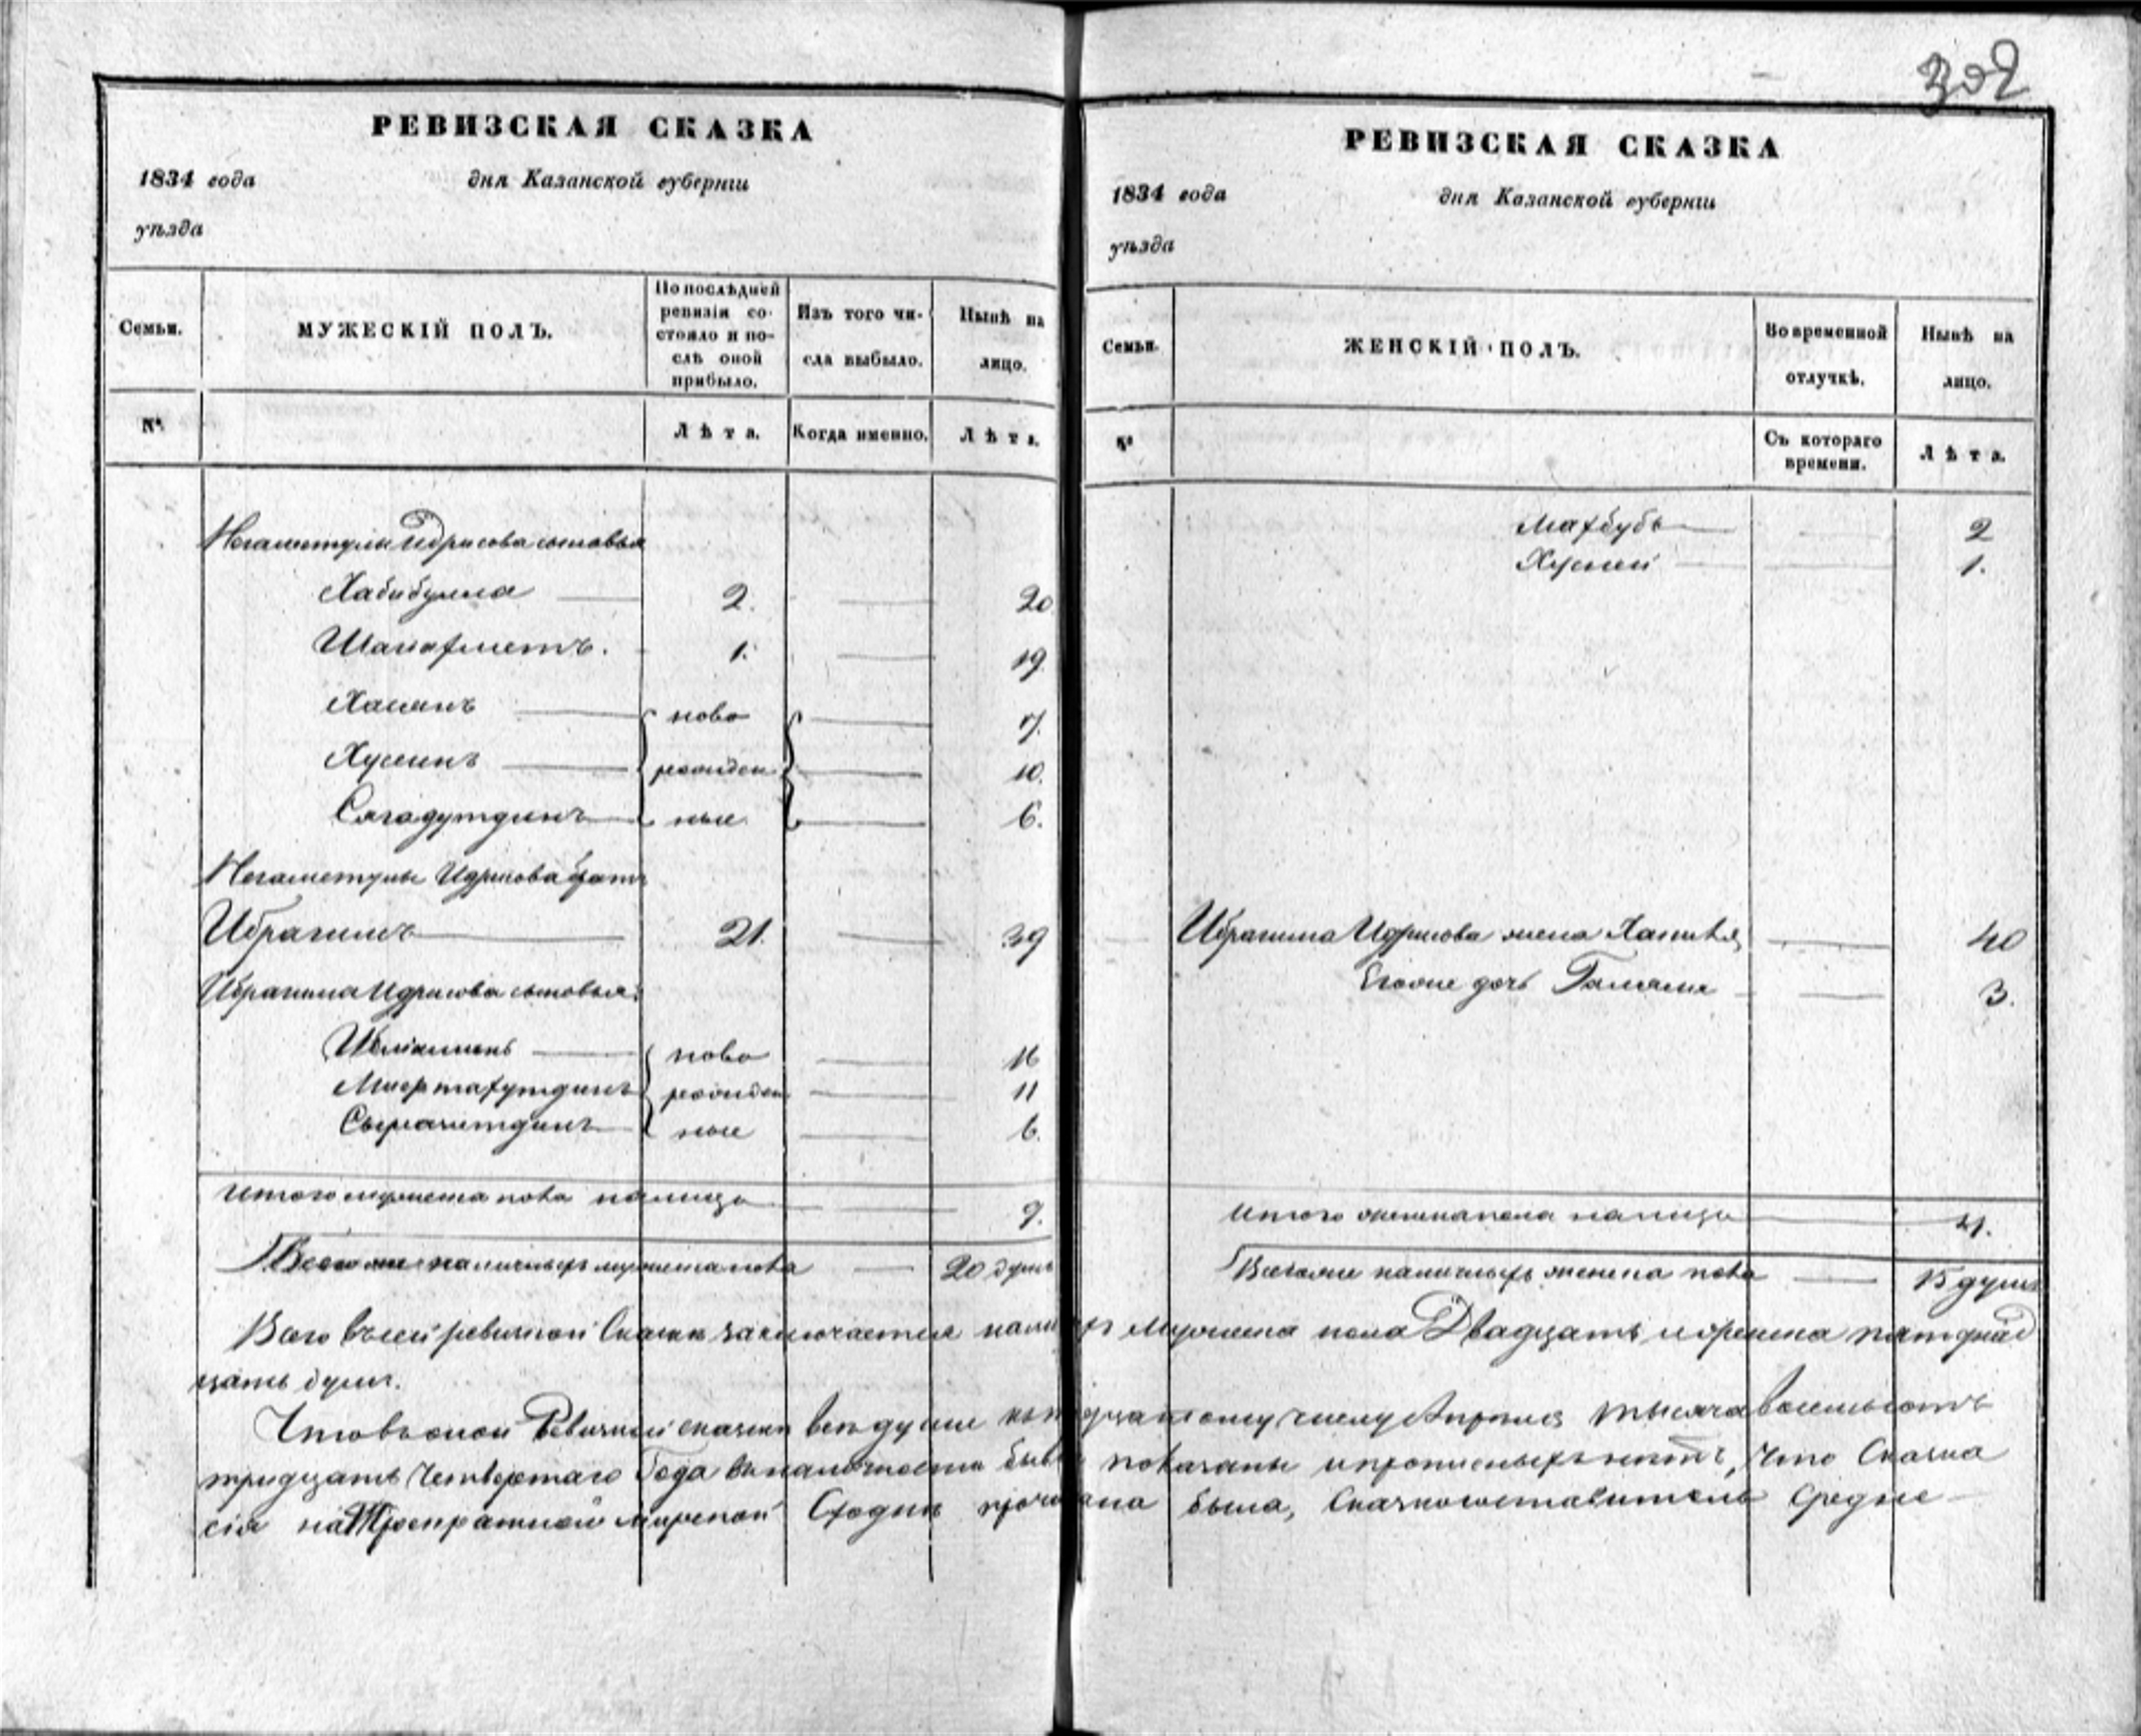 302
РЕВИЗСКАЯ СКАЗКА
1834 года дня Казанской губернiи
уѣзда
Семьи.
МУЖЕСКIЙ ПОЛЪ.
По послѣдней ревизiи состояло и послѣ оной прибыло.
Изъ того числа выбыло.
Нынѣ на лицо.
№.
Лѣта.
Когда именно.
Лѣта.
Негаметуллы Идрисова сыновья
Хабибулла 2. 20
Шаиахметъ. 1. 19.
Хасанъ ново 7.
Хусеинъ ревизден 10.
Сагадутдинъ ные 6.
Негаметуллы Идрисова братъ
Ибрагимъ 21. 39
Ибрагима Идрисова сыновья:
ново 16
ревизден 11
Сыразетдинъ ные 6.
Итого мужеска пола налицо 9.
Всего же наличныхъ мужеска пола 20 душъ
РЕВИЗСКАЯ СКАЗКА
1834 года дня Казанской губернiи
уѣзда
Семьи.
ЖЕНСКIЙ ПОЛЪ.
Во временной отлучкѣ.
Нынѣ на лицо.
№
Съ котораго времени.
Лѣта.
Махбубъ 2
1.
Ибрагима Идрисова жена 40
дочь 3.
Итого женска пола налицо 4.
Всего же наличныхъ женска пола 15 душъ
Всего въ сей ревизкой Сказкѣ заключается мужеска пола Двадцать женска пятнад
цать душъ.
Что въ оной Ревизкой сказки всѣ души числу Апреля тысяча восемьсотъ
тридцать Четвертаго Года въ наличности показаны и прописныхъ нѣтъ, что Сказка
сiя на Мирской Сходкѣ прочитана была,